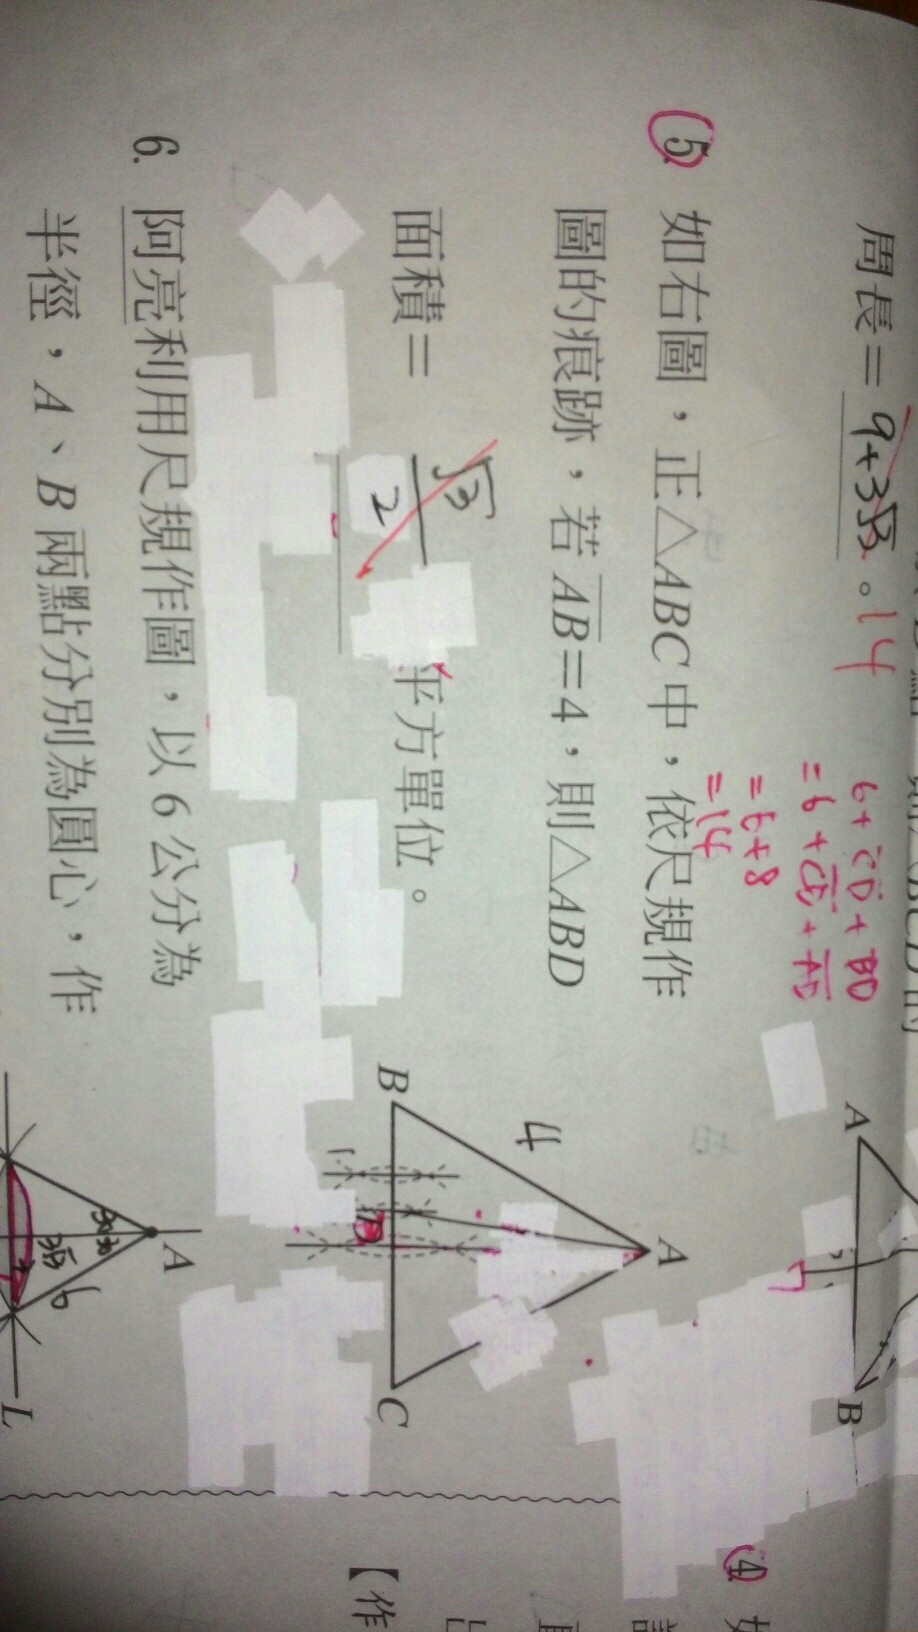 周長= 9+3√3 。14
6+CD+BD
=6+CD+AD
=6+8
=14
A
B
5. 如右圖，正△ABC中，依尺規作
圖的痕跡，若AB=4，則△ABD
面積= √3/2 平方單位。
4
A
B
D
C
6. 阿亮利用尺規作圖，以6公分為
半徑，A、B兩點分別為圓心，作
A
30 30
3√3
6
L
4.
【作